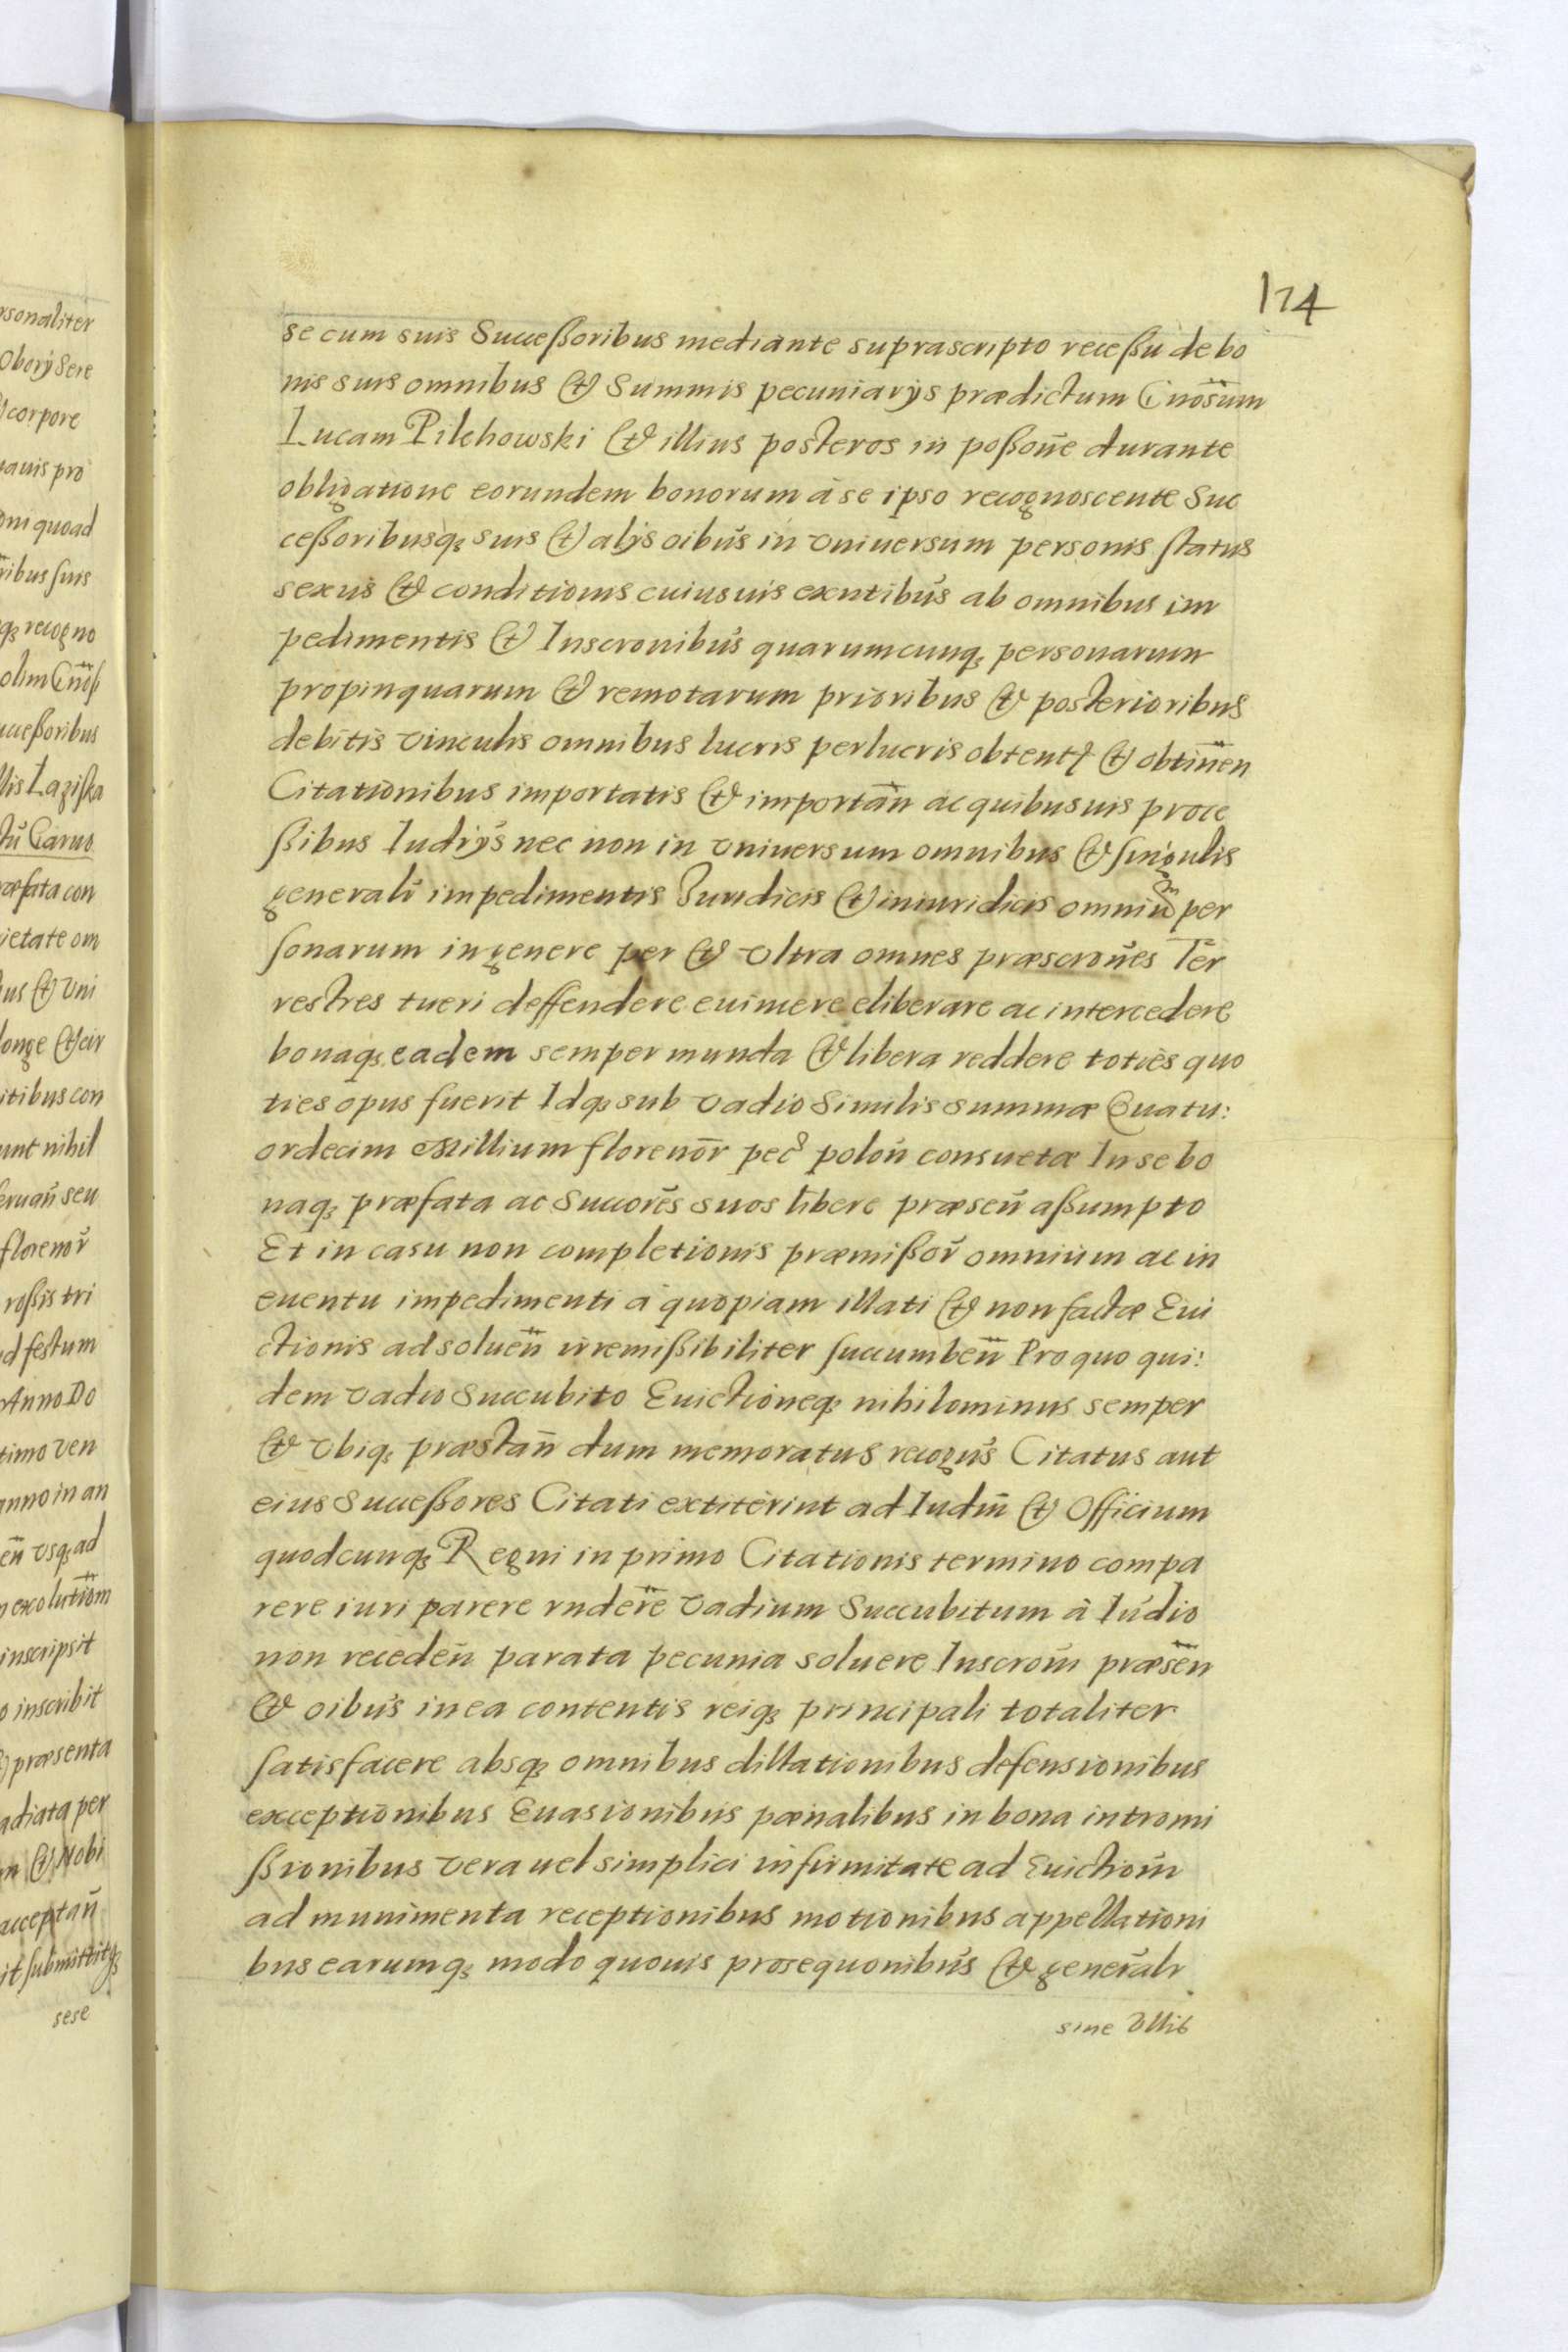 rsonaliter
Oborÿ Sere
corpore
uauis pro
oni quoad
ribus suis
qȝ recogno
olim Gnosß
uccessoribus
llis Laziska
tū Carno
ræfata con
ietate om
bus & Vni
longe & cir
itibus con
unt nihil
eruan̄ seu
florenor̄
rossis tri
d festum
Anno Do
timo ven
anno in an
en̄ vsqȝ ad
exolutiom
inscripsit
o inscribit
præsenta
adiata per
m & Nobi
acceptan̄
it submittitqȝ
sese
174
se cum suis Successoribus mediante suprascripto recessu de bo
nis suis omnibus & Summis pecuniarÿs prædictum Gnosum
Lucam Pilchowski & illius posteros in possone durante
obligatione eorundem bonorum à se ipso recognoscente Suc
cessoribusqȝ suis & alÿs oibus in vniuersum personis status
sexus & conditionis cuiusuis exntibus ab omnibus im
pedimentis & Inscronibus quarumcunqȝ personarum
propinquarum & remotarum prioribus & posterioribus
debitis vinculis omnibus lucris perlucris obtent & obtinen
Citationibus importatis & importan̄ ac quibusuis proce
ssibus Iudiÿs nec non in vniuersum omnibus & singulis
generali impedimentis Juridicis & iniuridicis omniū per
sonarum in genere per & vltra omnes præscrones Ter
restres tueri deffendere euincere eliberare ac intercedere
bonaqȝ eadem semper munda & libera reddere toties quo
ties opus fuerit Idqȝ sub vadio Similis summæ Quatu:
ordecim Millium florenor̄ pec̄ polon̄ consuetæ In se bo
naqȝ præfata ac Succores suos libere præsen̄ assumpto
Et in casu non completionis præmissor̄ omnium ac in
euentu impedimenti à quopiam illati & non factæ Eui
ctionis ad soluen̄ irremissibiliter succumben̄ Pro quo qui:
dem vadio Succubito Euictioneqȝ nihilominus semper
& vbiqȝ præstan̄ dum memoratus recogns Citatus aut
eius Successores Citati extiterint ad Iudm̄ & Officium
quodcunqȝ Regni in primo Citationis termino compa
rere iuri parere rndere vadium Succubitum à Iudio
non receden̄ parata pecunia soluere Inscrom̄ præsen̄
& oibus in ea contentis reiqȝ principali totaliter
satisfacere absqȝ omnibus dillationibus defensionibus
exceptionibus Euasionibus pœnalibus in bona intromi
ssionibus vera uel simplici infirmitate ad Euictiom̄
ad munimenta receptionibus motionibus appellationi
bus earumqȝ modo quouis prosequonibus & generali
sine Vllis